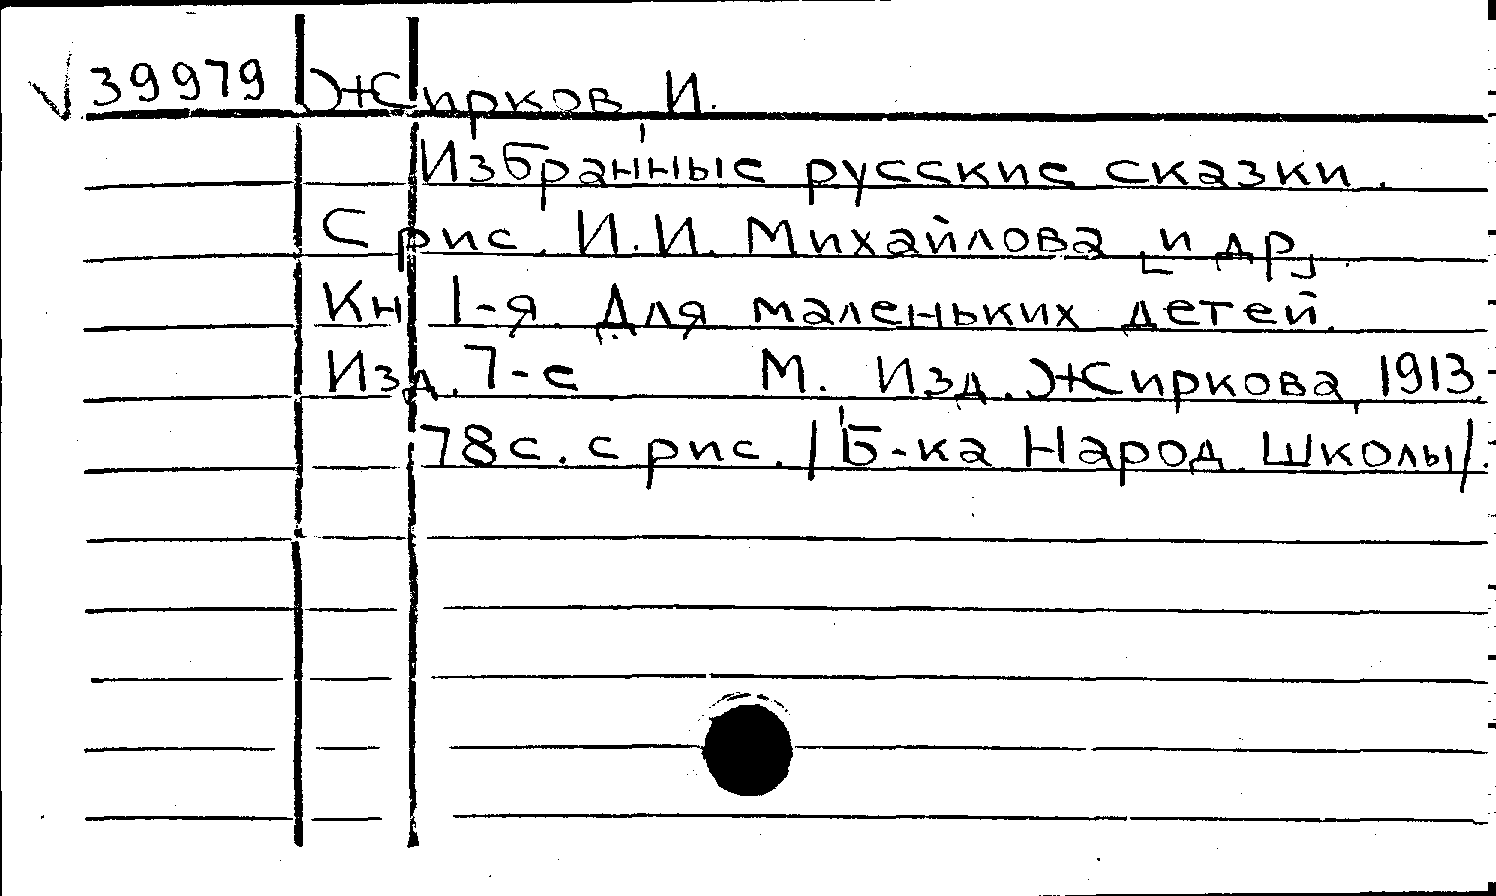 √39979 Жирков, И.
Избранные русские сказки.
С рис. И.И. Михайлова [и др].
Кн 1-я. Для маленьких детей.
Изд. 7-е М. Изд. Жиркова, 1913.
78с. с рис. /Б-ка Народ. Школы/.